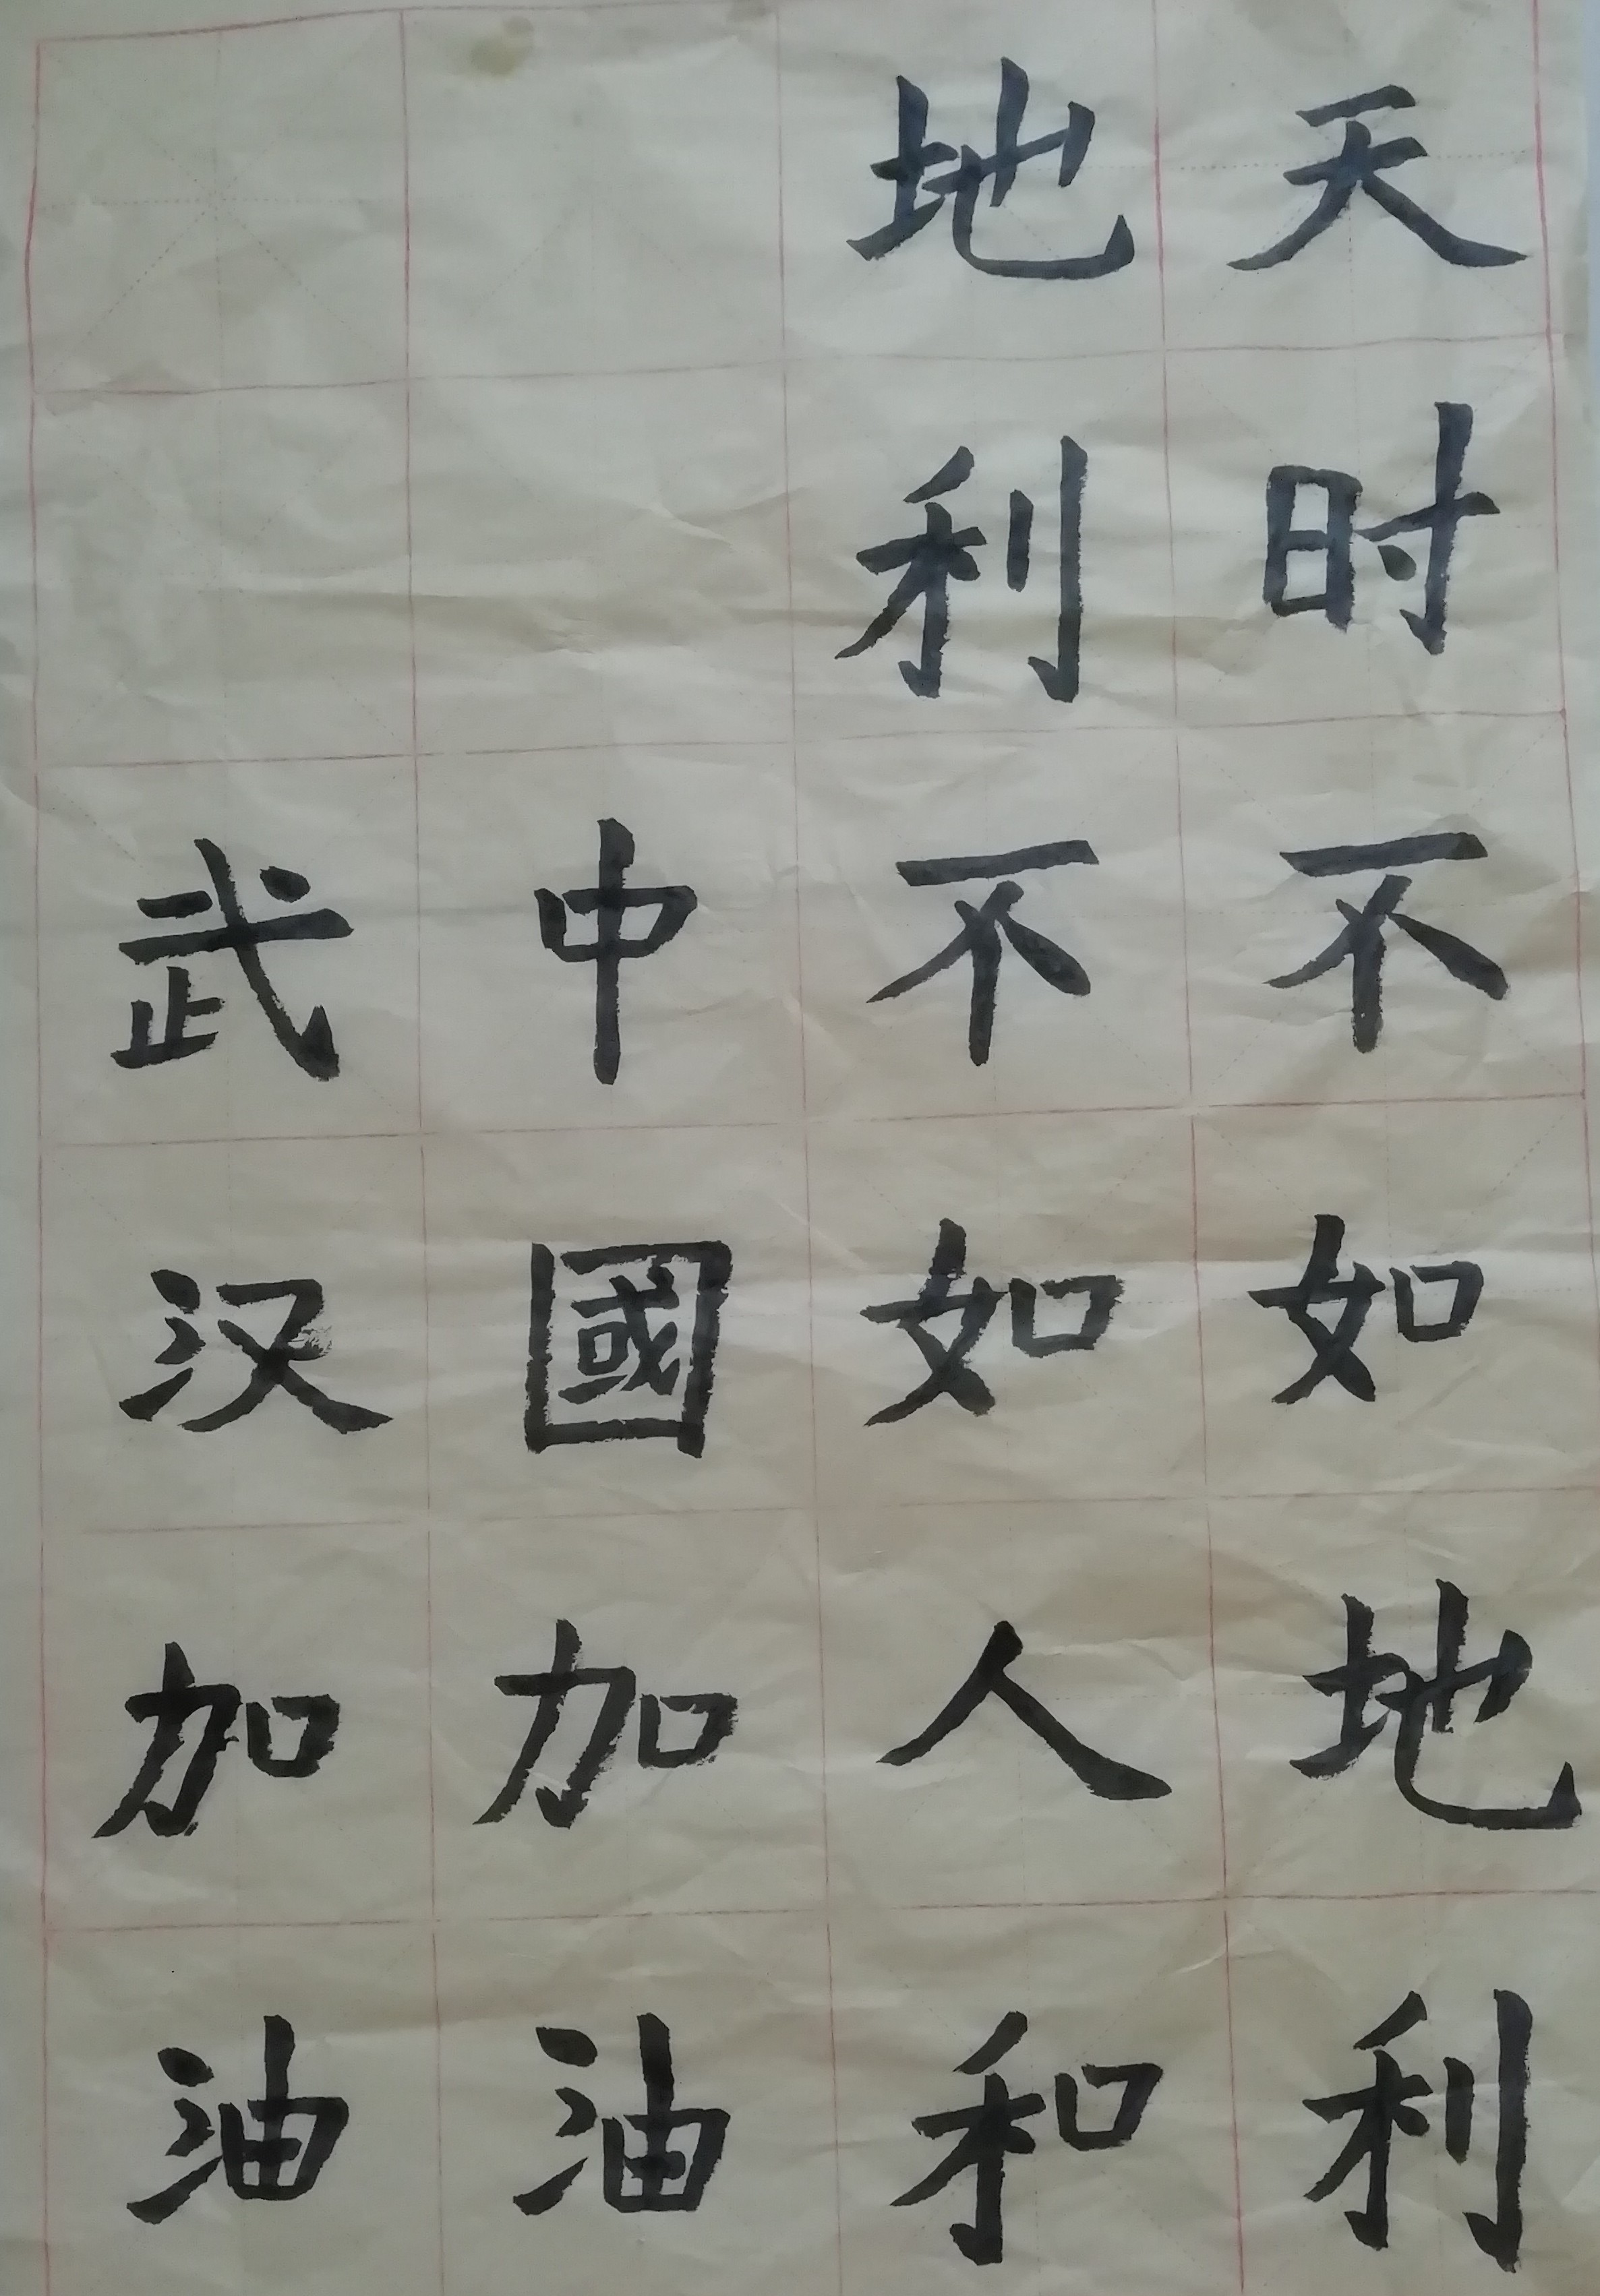 天时不如地利
地利不如人和
中國加油
武汉加油